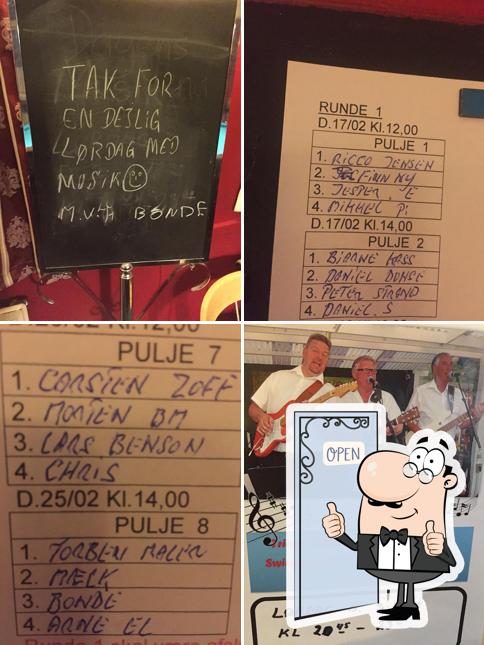 TAK FOR
EN DEJLIG
LØRDAG MED
MUSIK
M.V.H BONDE
RUNDE 1
D.17/02 Kl.12,00
PULJE 1
1. RICCO JENSEN
2. FINN NY
3. JESPER. E
4. MIKKEL P.
D.17/02 Kl.14,00
PULJE 2
1. BJARNE HASS
2. DANIEL
3. PETER STRAND
4. DANIEL. S
D.25/02 Kl.12,00
PULJE 7
1. CARSTEN ZOFF
2. MORTEN BM
3. LARS BENSON
4. CHRIS
D.25/02 Kl.14,00
PULJE 8
1. TORBEN MALER
2. MÆLK
3. BONDE
4. ARNE EL
Runde 1 skal være
OPEN
KL 20 45